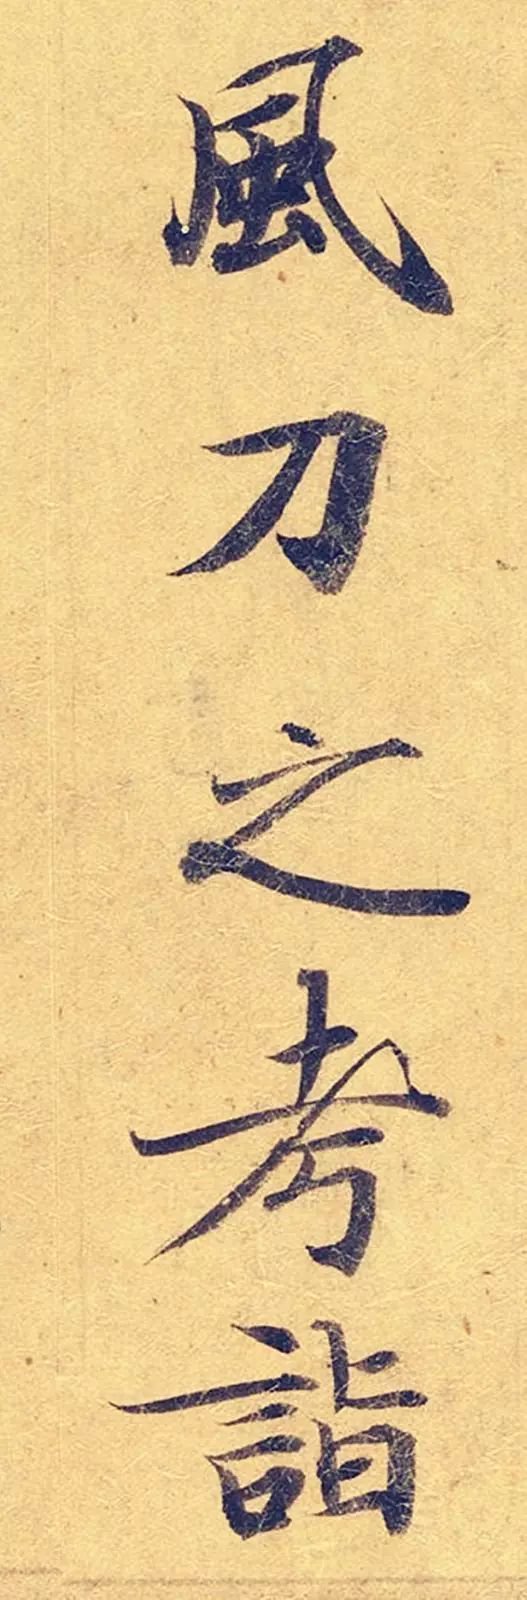 風刀之考詣